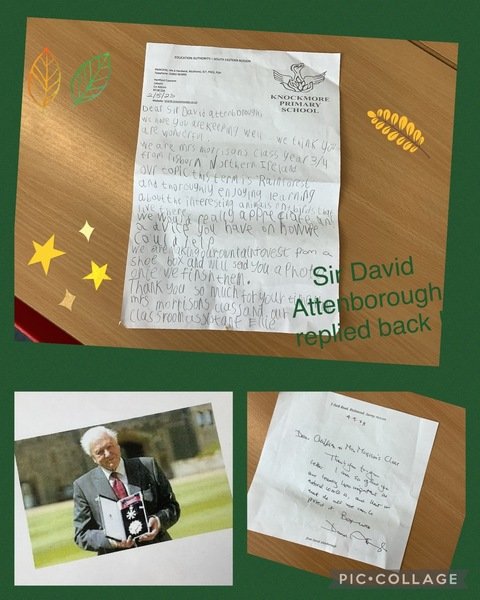 EDUCATION AUTHORITY / SOUTH EASTERN REGION
KNOCKMORE
PRIMARY
SCHOOL
Dear Sir David attenborough
we hope you are keeping well we think you
are wonderful.
we are mrs morrisons class year 3/4
from Lisburn Northern Ireland
our topic this term is Rainforest
and thoroughly enjoying learning
about the interesting animals
live there
we would really appreciate any
advice you have on how we
could help
we are
shoe box and will send you a photo
once we finish them.
Thank you so much for your time
mrs morrisons class and our
classroom assistant Ellie
Sir David
Attenborough
replied back !
Dear Children in Mrs Morrison's Class
Thank you for your
letter. I am so glad you
are learning how important the
natural world is, and that we
must do all we can to
protect it. Best wishes
PIC•COLLAGE